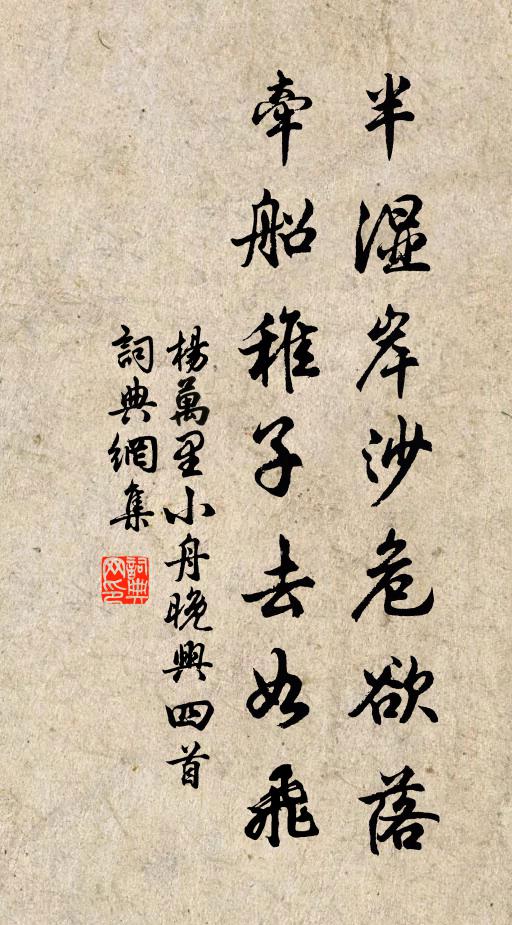 半濕岸沙危欲落
牽船稚子去如飛
楊萬里小舟晚興四首
詞典網集
詞典
网印